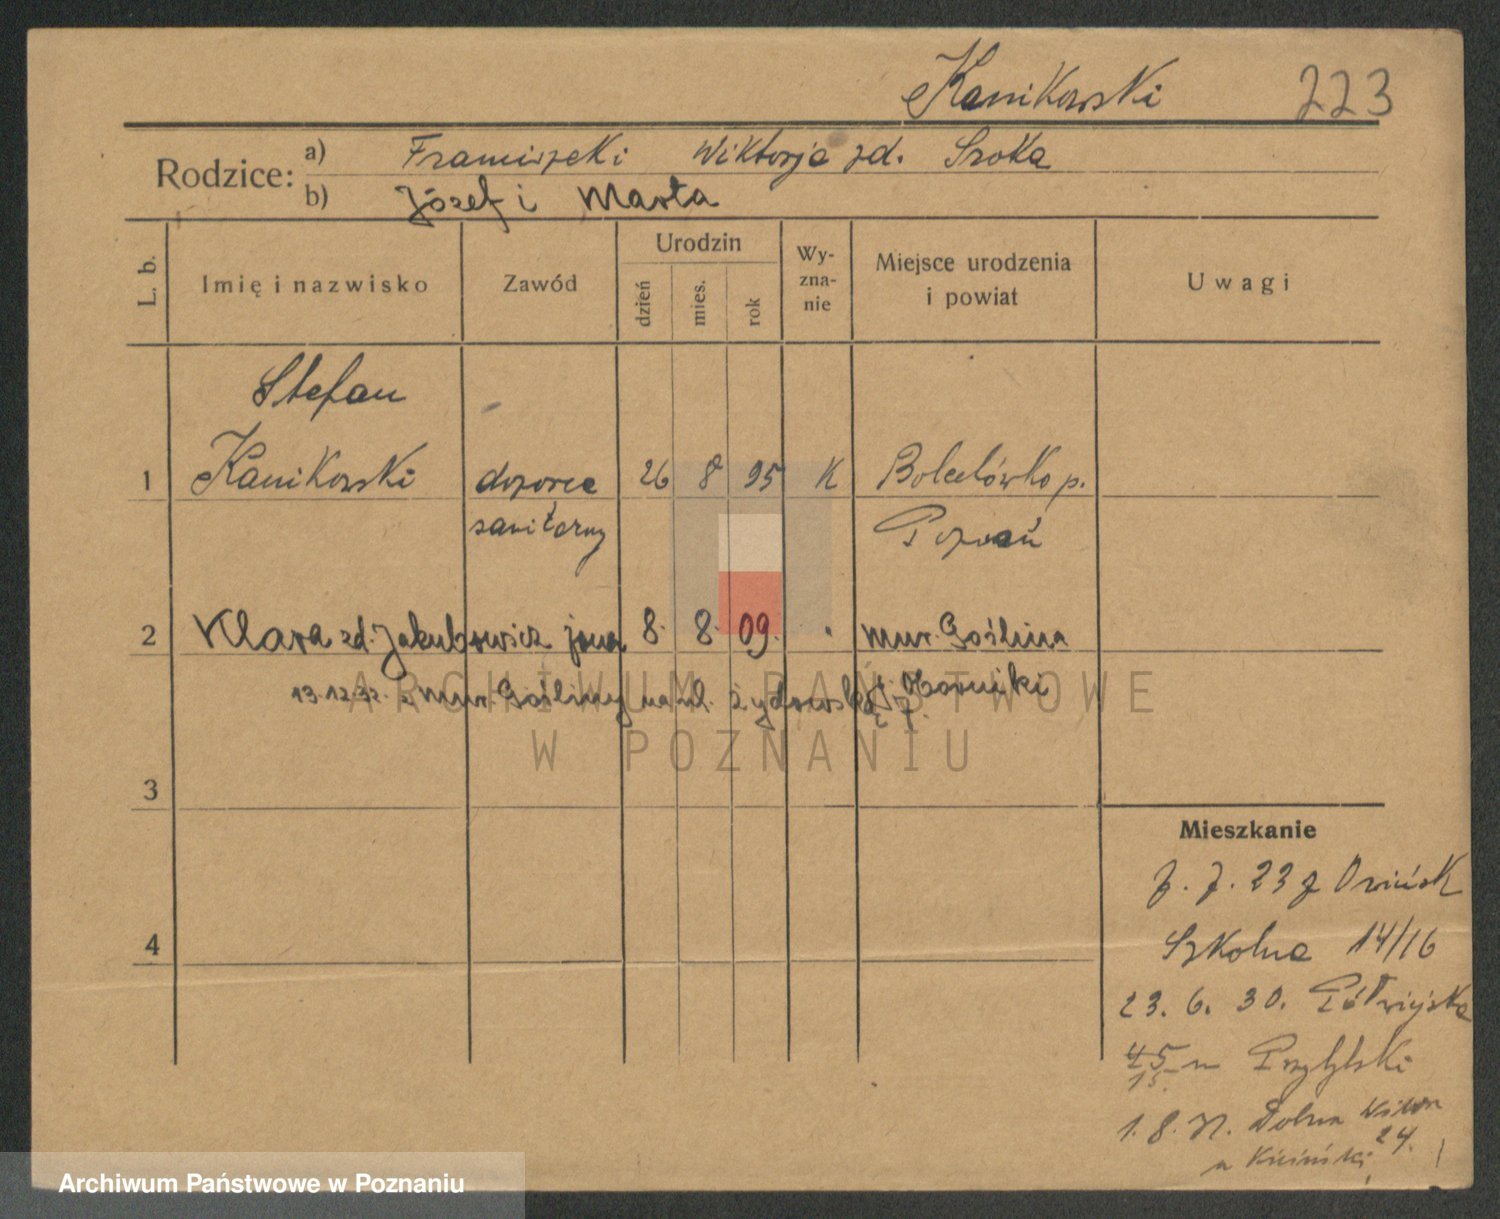 Kanikowski 223
Rodzice:
a) Franciszek i Wiktorja zd. Sroka
b) Józef i Marta
L. b.
Imię i nazwisko
Zawód
Urodzin
dzień
mies.
rok
Wy-
zna-
nie
Miejsce urodzenia
i powiat
Uwagi
Stefan
1 Kanikowski dozorca 26 8 95 K Bolechówko p.
sanitarny Poznań
2 Klara zd. Jakubowicz żona 8. 8. 09. " Mur. Goślina
13.12.32. z Mur. Gośliny na ul. Żydowską 7. Oborniki
3
4
Mieszkanie
23 z Owińsk
Szkolna 14/16
23. 6. 30. Półwiejska
45 Przybylski
1. 8. Dolna Wilda
24.
ARCHIWUM PAŃSTWOWE
W POZNANIU
Archiwum Państwowe w Poznaniu